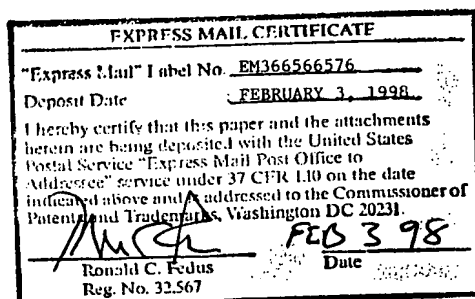 EXPRESS MAIL CERTIFICATE
"Express Mail" Label No. EM366566576
Deposit Date FEBRUARY 3, 1998
I hereby certify that this paper and the attachments
herein are being deposited with the United States
Postal Service "Express Mail Post Office to
Addressee" service under 37 CFR 1.10 on the date
indicated above and is addressed to the Commissioner of
Patents and Trademarks, Washington DC 20231.
FEB 3 98
Ronald C. Fedus Date
Reg. No. 32,567